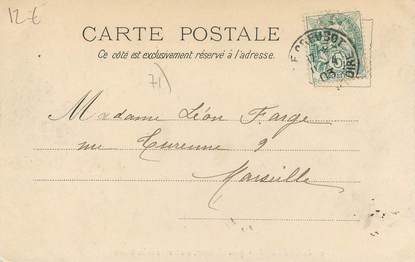 12-€
CARTE POSTALE
Ce côté est exclusivement réservé à l'adresse.
71)
Madame Léon Farge
rue Turenne 9
Marseille